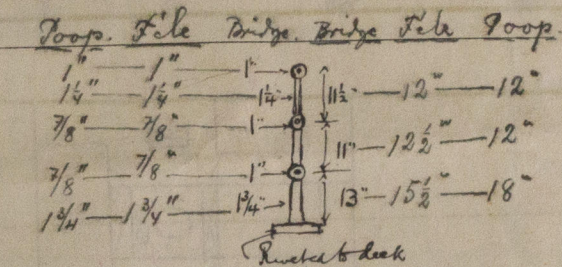 Poop. F'cle Bridge. Bridge F'cle Poop.
1" — 1" — 1" 11½" — 12" — 12"
1¼" 1¼" — 1¼"
7/8" — 7/8" — 1" 11" — 12½" — 12"
7/8" — 7/8" — 1" 13" — 15½" — 18"
1¾" — 1¾" — 1¾"
Riveted to deck